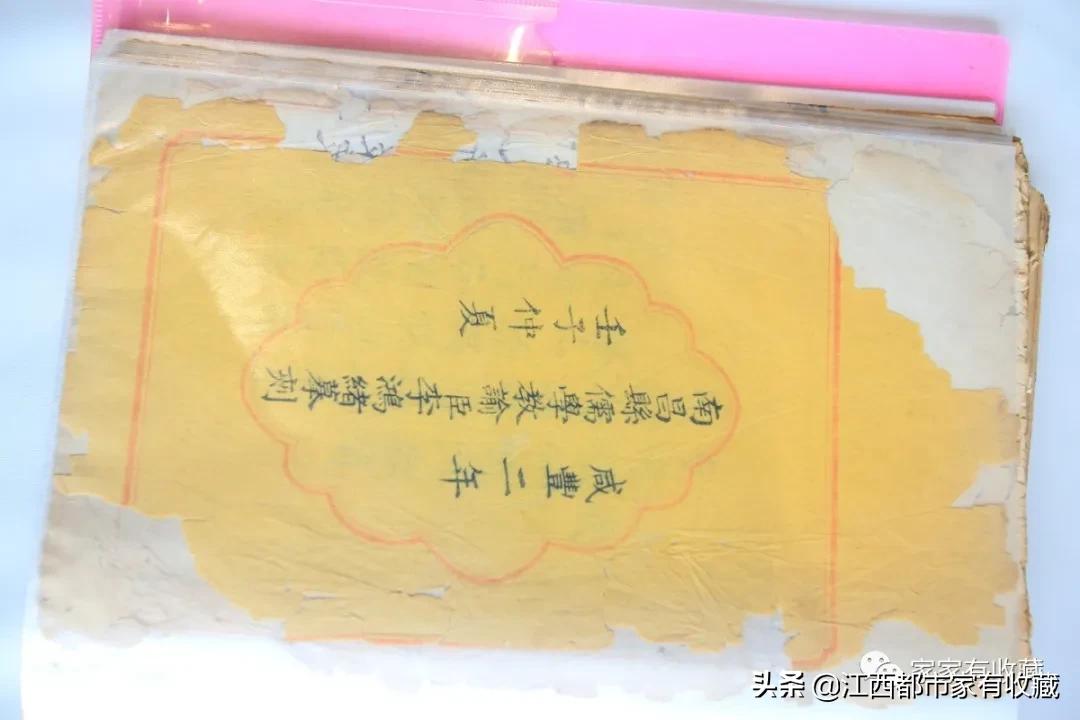 咸豐二年
南昌縣儒學教諭臣李鴻緒摹刻
壬子仲夏
家家有收藏
头条 @江西都市家有收藏